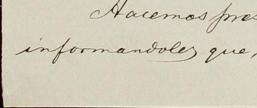 Hacemos pres
informandoles que,